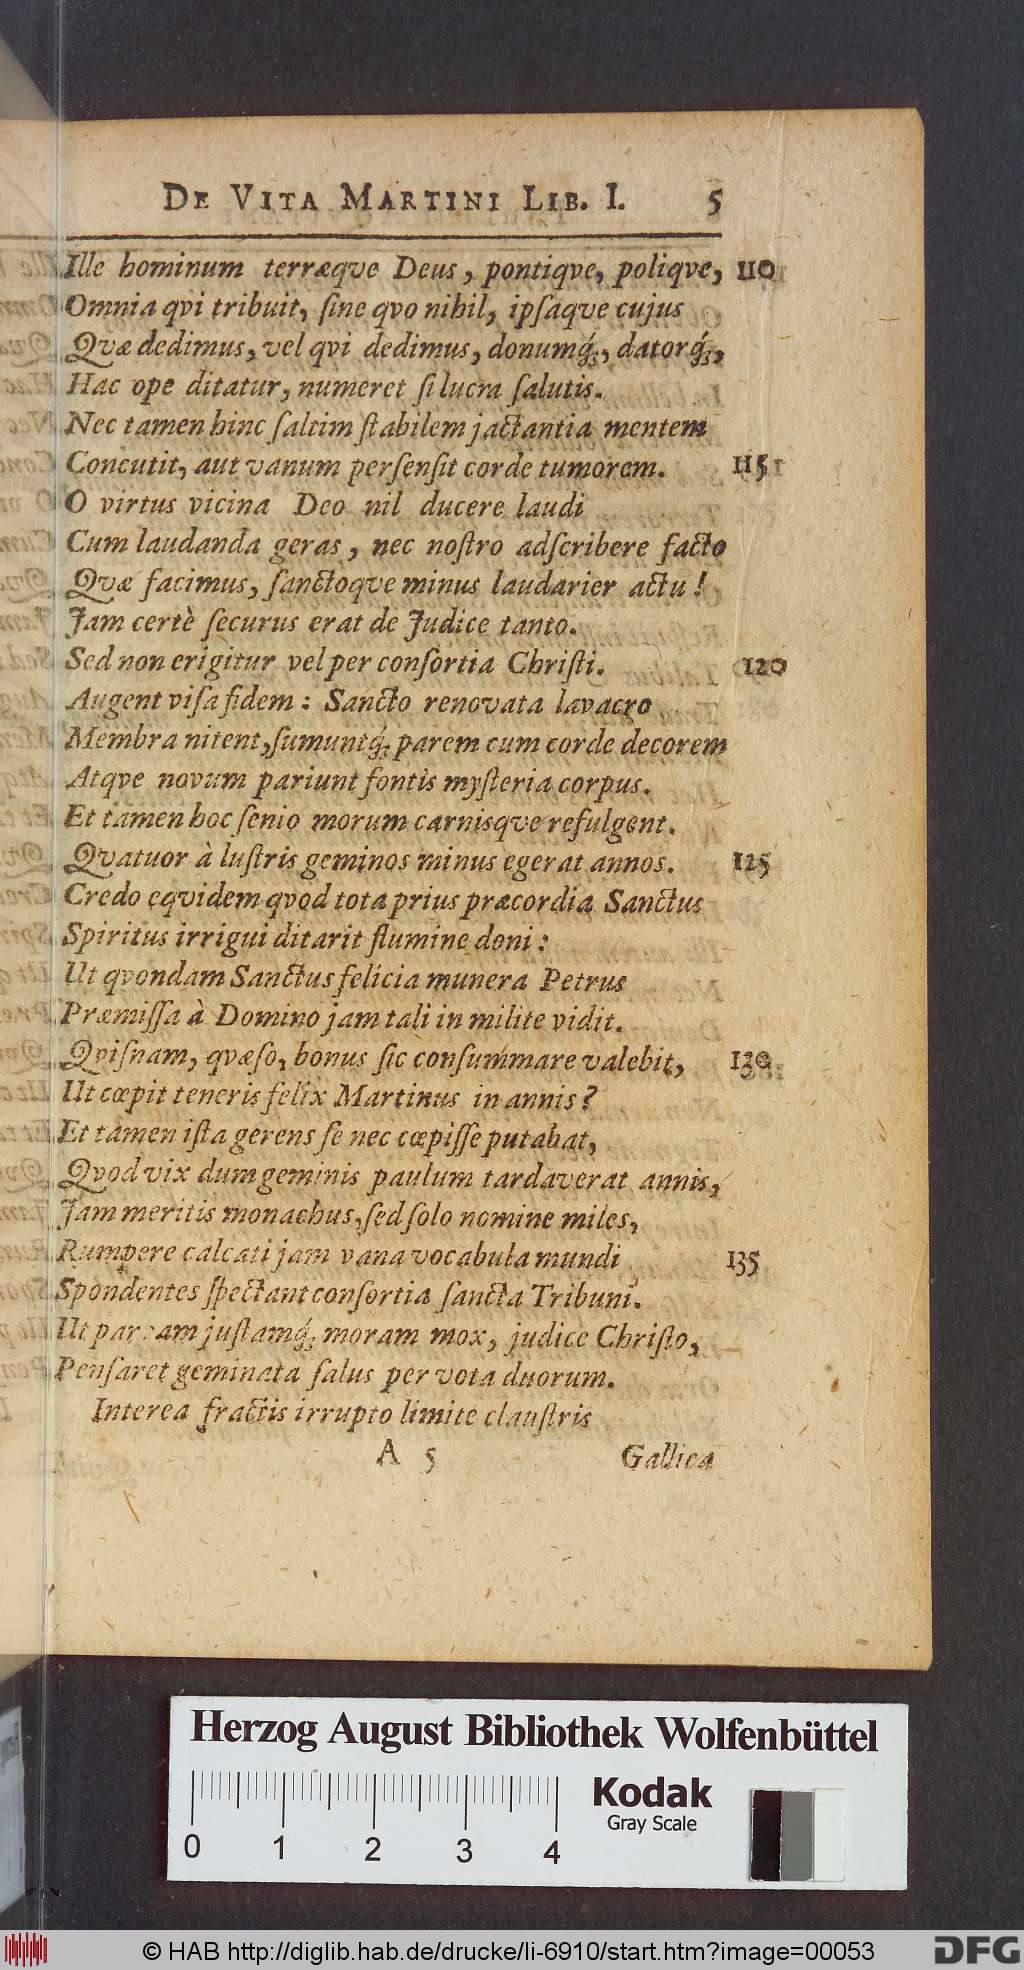 DE VITA MARTINI LIB. I. 5
Ille hominum terræqve Deus, pontiqve, poliqve, 110
Omnia qvi tribuit, ſine qvo nihil, ipſaqve cujus
Qvæ dedimus, vel qvi dedimus, donumq́;, datorq́;,
Hac ope ditatur, numeret ſi lucra ſalutis.
Nec tamen hinc ſaltim ſtabilem jactantia mentem
Concutit, aut vanum perſenſit corde tumorem. 115
O virtus vicina Deo nil ducere laudi
Cum laudanda geras, nec noſtro adſcribere facto
Qvæ facimus, ſanctoqve minus laudarier actu!
Jam certè ſecurus erat de Judice tanto.
Sed non erigitur vel per conſortia Chriſti. 120
Augent viſa fidem: Sancto renovata lavacro
Membra nitent, ſumuntq́; parem cum corde decorem
Atqve novum pariunt fontis myſteria corpus.
Et tamen hoc ſenio morum carnisqve refulgent.
Qvatuor à luſtris geminos minus egerat annos. 125
Credo eqvidem qvod tota prius præcordia Sanctus
Spiritus irrigui ditarit flumine doni:
Ut qvondam Sanctus felicia munera Petrus
Præmiſſa à Domino jam tali in milite vidit.
Qviſnam, qvæſo, bonus ſic conſummare valebit, 130
Ut cœpit teneris felix Martinus in annis?
Et tamen iſta gerens ſe nec cœpiſſe putabat,
Qvod vix dum geminis paulum tardaverat annis,
Jam meritis monachus, ſed ſolo nomine miles,
Rumpere calcati jam vana vocabula mundi 135
Spondentes ſpectant conſortia ſancta Tribuni.
Ut parvam juſtamq́; moram mox, judice Chriſto,
Penſaret geminata ſalus per vota duorum.
Interea fractis irrupto limite clauſtris
A 5 Gallica
Herzog August Bibliothek Wolfenbüttel
Kodak
Gray Scale
0 1 2 3 4
© HAB http://diglib.hab.de/drucke/li-6910/start.htm?image=00053
DFG